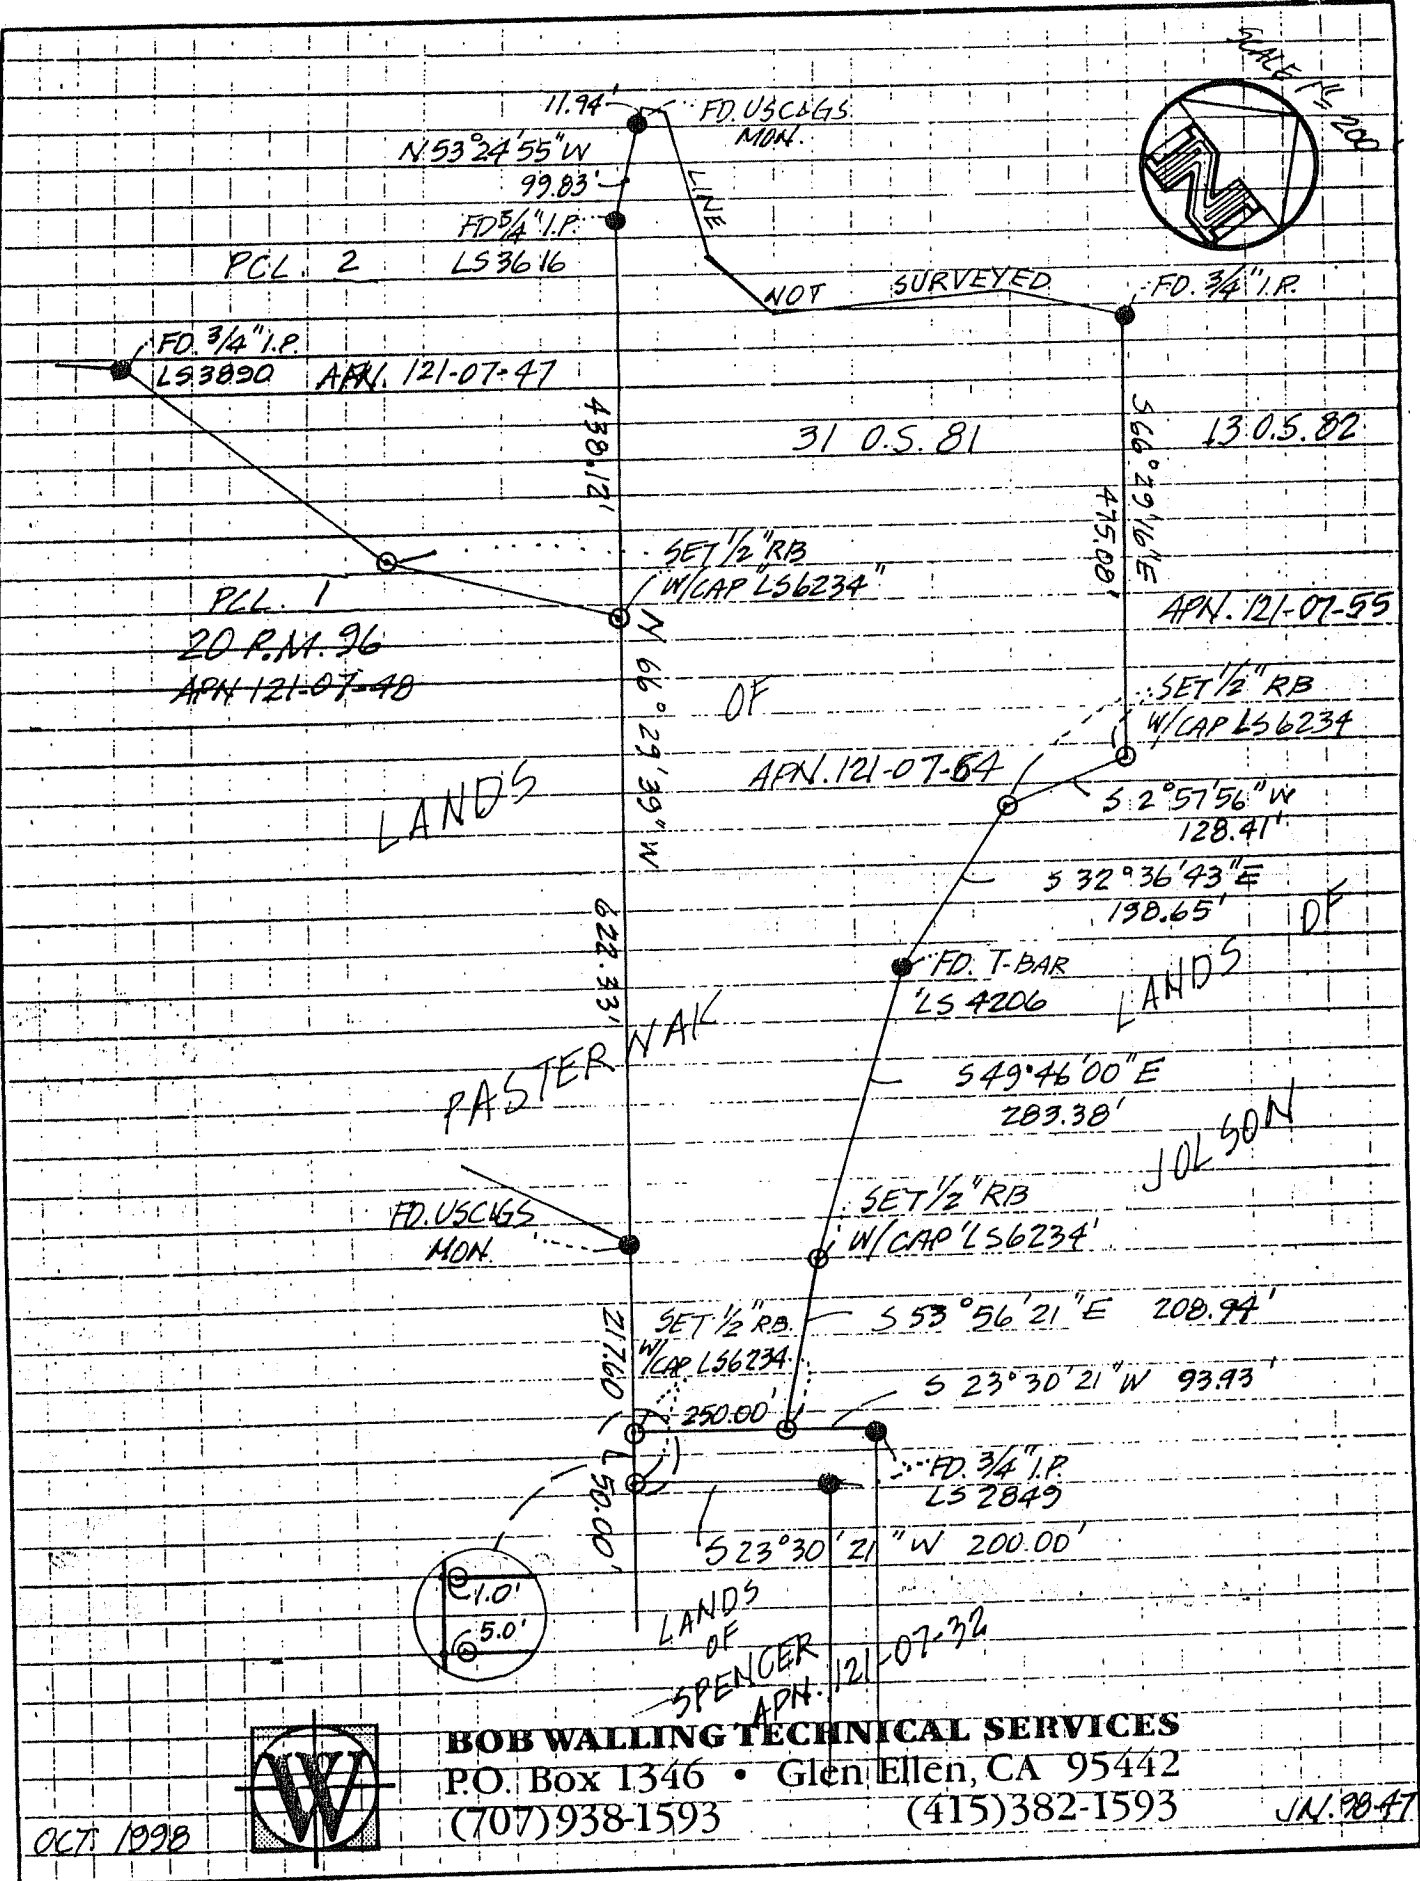 SCALE 1"= 200'
11.94'
FD. USC&GS
MON.
N 53°24'55" W
99.83'
LINE
FD 3/4" I.P.
LS 3616
PCL. 2
NOT SURVEYED
FD. 3/4" I.P.
FD. 3/4" I.P.
LS3890
APN. 121-07-47
438.12'
31 O.S. 81
S 66°29'16" E
475.08'
13 O.S. 82
SET 1/2" RB
W/CAP "LS6234"
PCL. 1
20 P.M. 96
APN 121-07-48
APN. 121-07-55
N 66°29'39" W
OF
SET 1/2" RB
W/CAP LS6234
LANDS
APN. 121-07-54
S 2°57'56" W
128.41'
S 32°36'43" E
198.65'
622.33'
LANDS OF
FD. T-BAR
LS 4206
PASTERNAK
S 49°46'00" E
283.38'
JOLSON
FD. USC&GS
MON.
SET 1/2" RB
W/CAP 'LS6234'
217.60'
SET 1/2" RB.
W/CAP LS6234
S 53°56'21" E 208.94'
S 23°30'21" W 93.93'
250.00'
50.00'
FD. 3/4" I.P.
LS 2849
S 23°30'21" W 200.00'
1.0'
5.0'
LANDS
OF
SPENCER
APN. 121-07-32
W
BOB WALLING TECHNICAL SERVICES
P.O. Box 1346 • Glen Ellen, CA 95442
(707)938-1593 (415)382-1593
OCT. 1998
J.N. 98-47